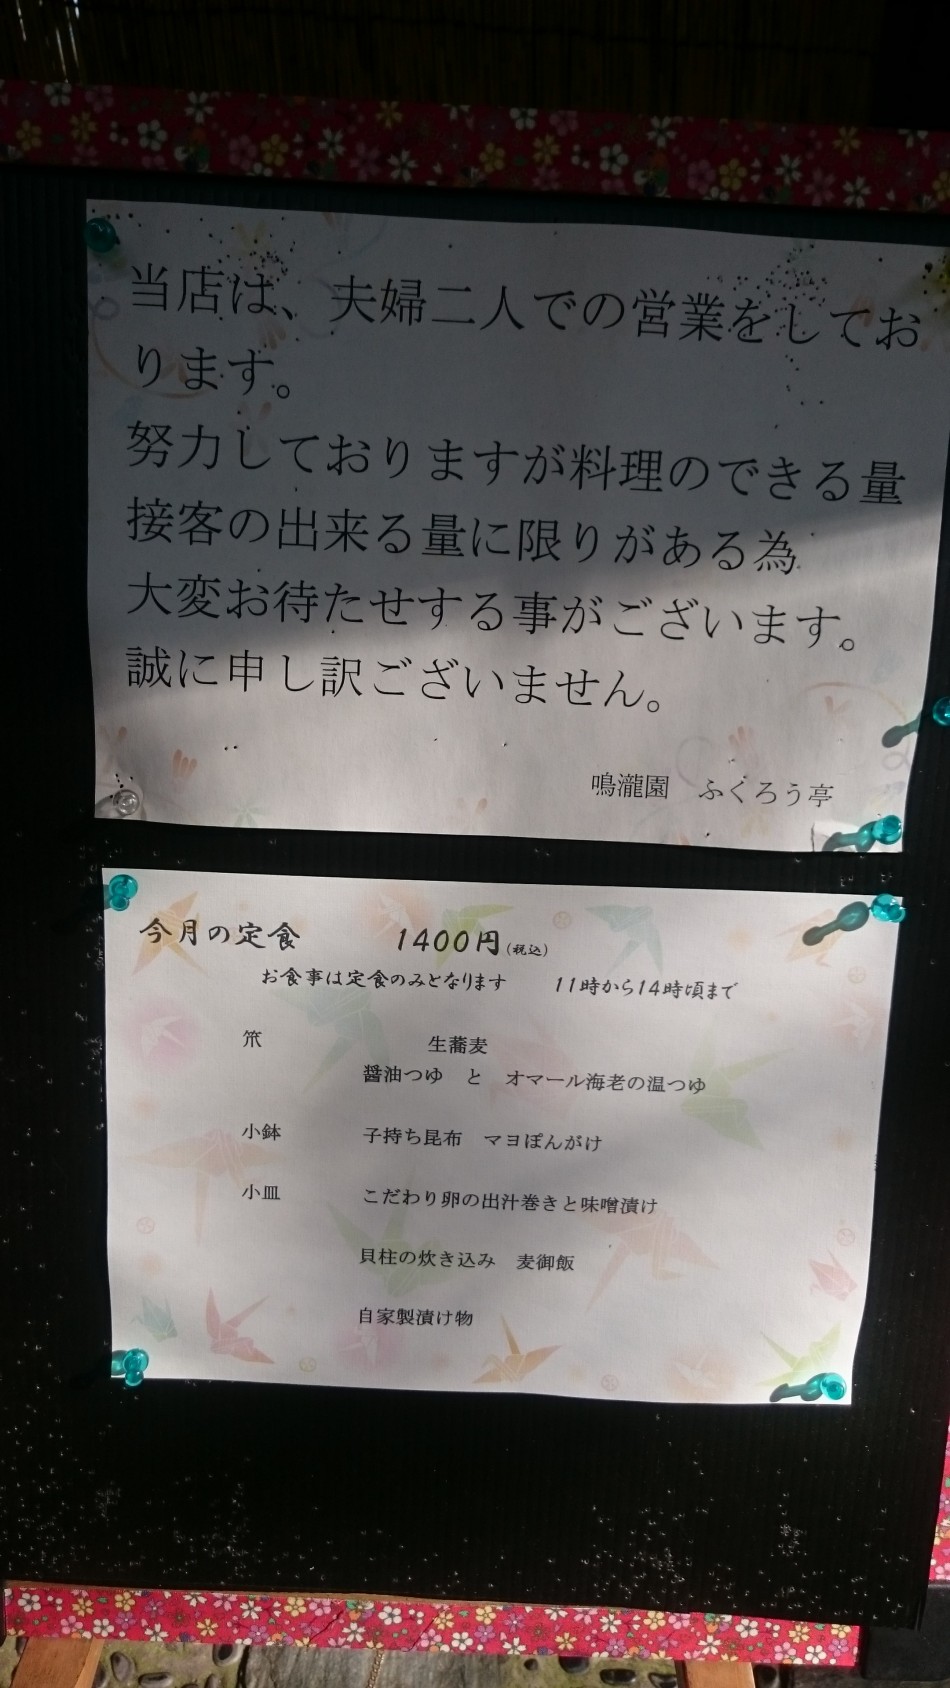 当店は、夫婦二人での営業をしてお
ります。
努力しておりますが料理のできる量
接客の出来る量に限りがある為
大変お待たせする事がございます。
誠に申し訳ございません。
鳴瀧園　ふくろう亭
今月の定食　1400円(税込)
お食事は定食のみとなります　11時から14時頃まで
笊　生蕎麦
醤油つゆ　と　オマール海老の温つゆ
小鉢　子持ち昆布　マヨぽんがけ
小皿　こだわり卵の出汁巻きと味噌漬け
貝柱の炊き込み　麦御飯
自家製漬け物